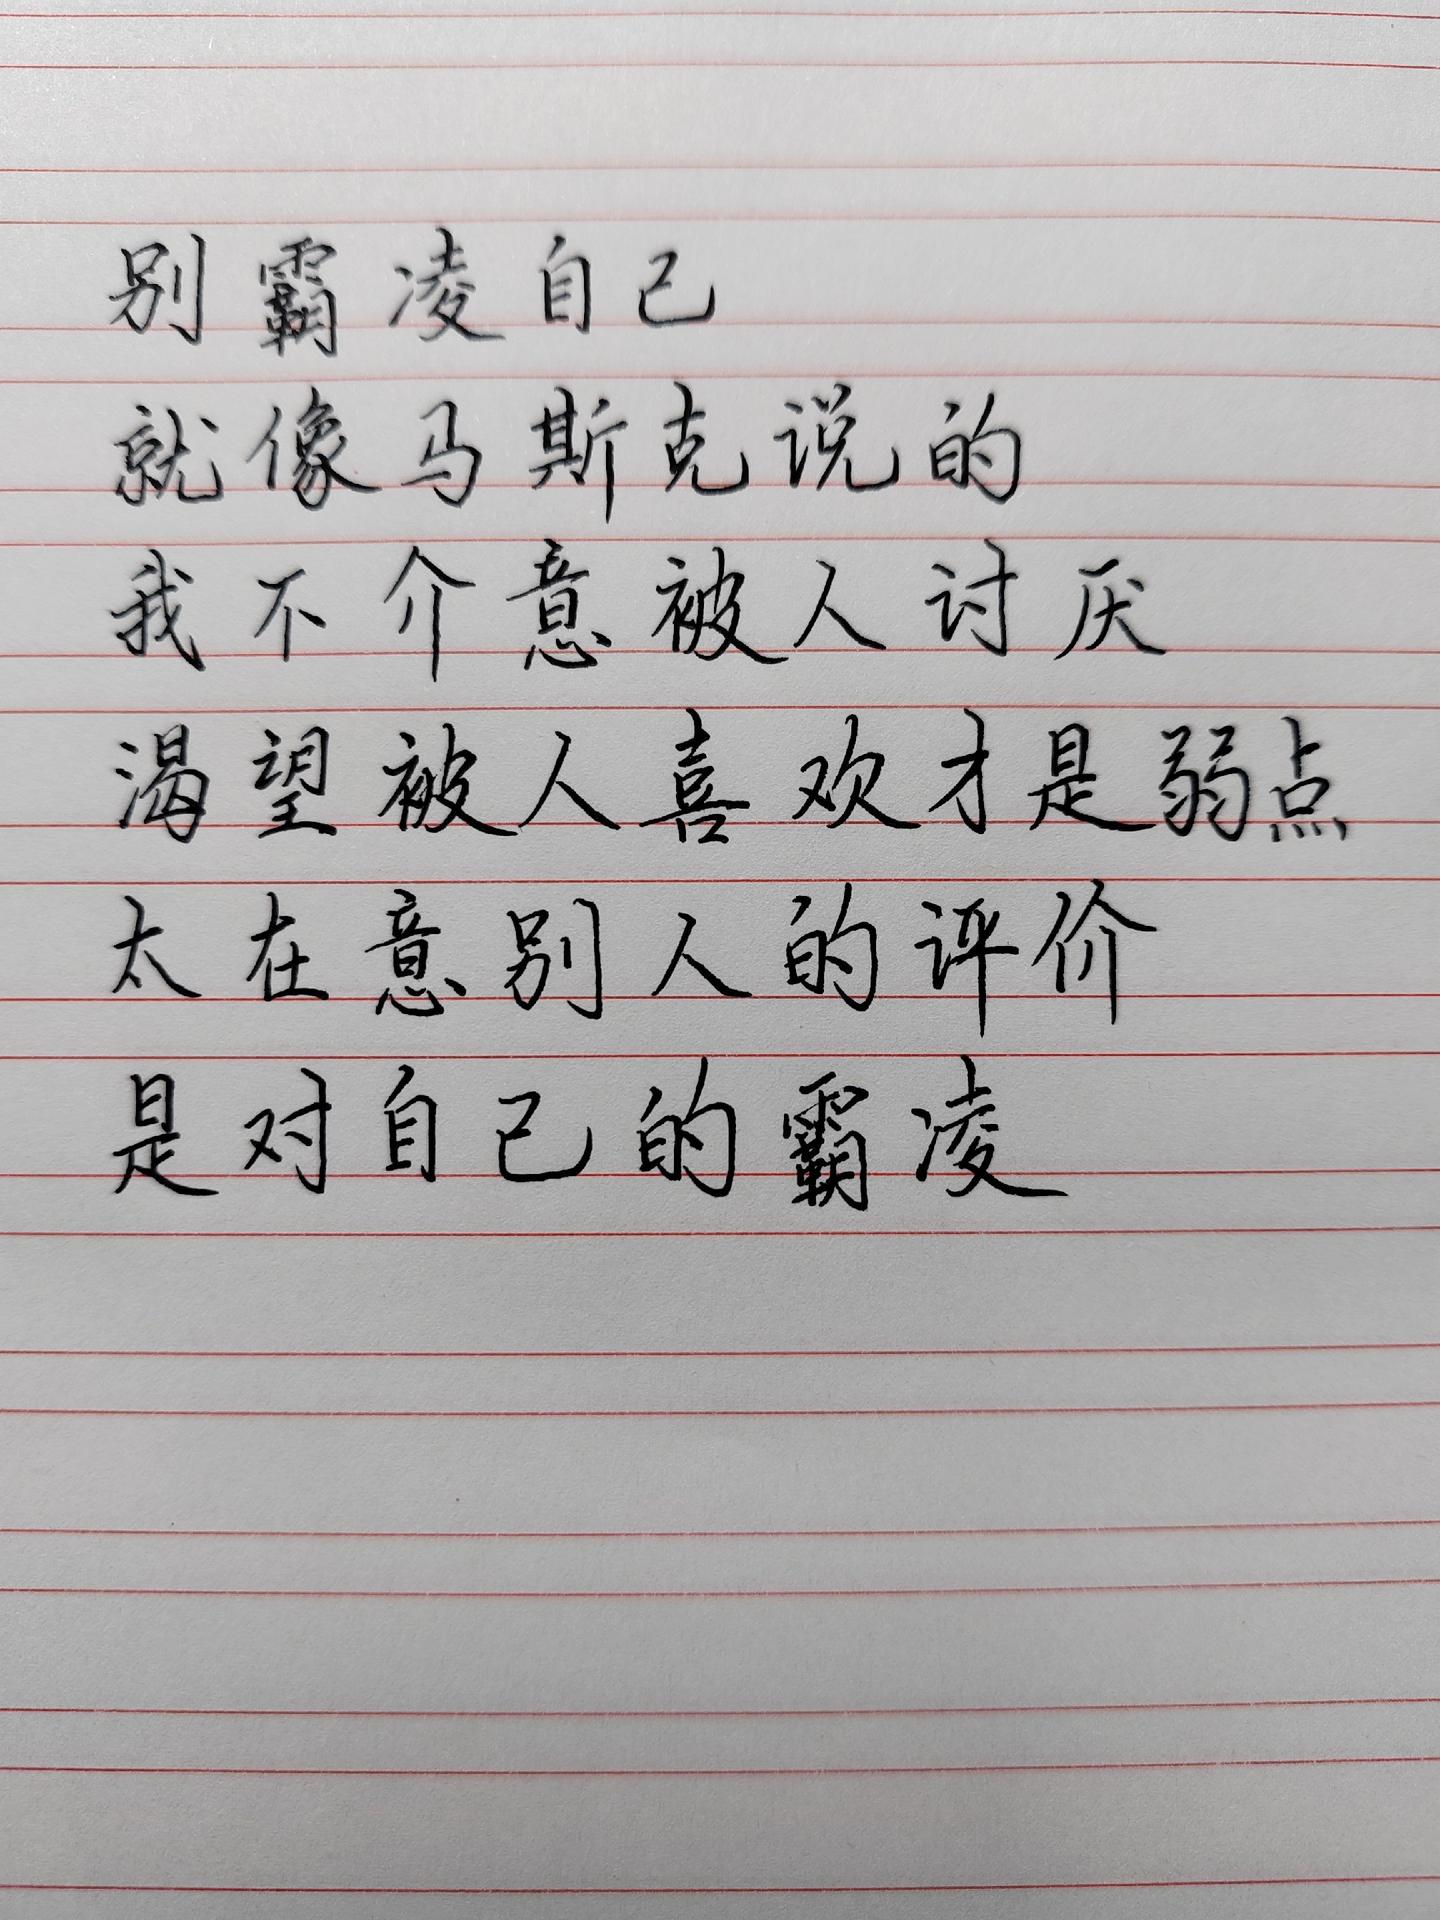 别霸凌自己
就像马斯克说的
我不介意被人讨厌
渴望被人喜欢才是弱点
太在意别人的评价
是对自己的霸凌